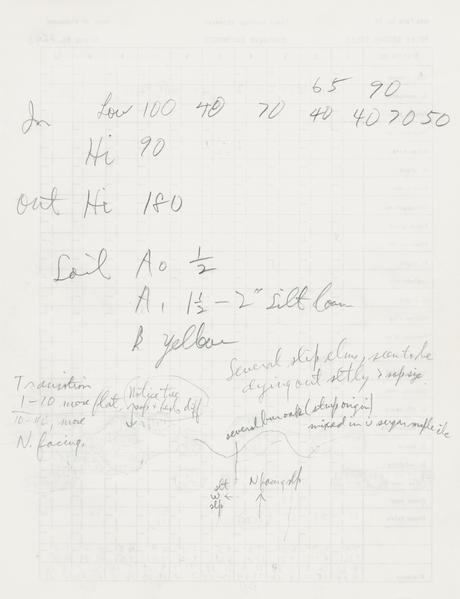 65 90
In Low 100 40 70 40 40 70 50
Hi 90
Out Hi 180
Soil A0 1/2
A1 1 1/2 - 2" silt loam
B yellow
Several slip elms, seem to be
dying out
Transition
1-10 more flat,
10- more
N. facing.
Notice tree
diff
several bur oaks (stump origin)
mixed in w sugar maple etc
slt
w ←
slp
N facing slp